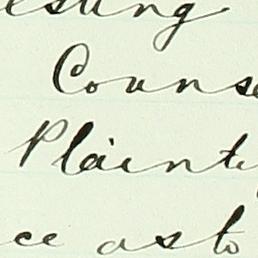 esting
Couns
Plaint
ce as to